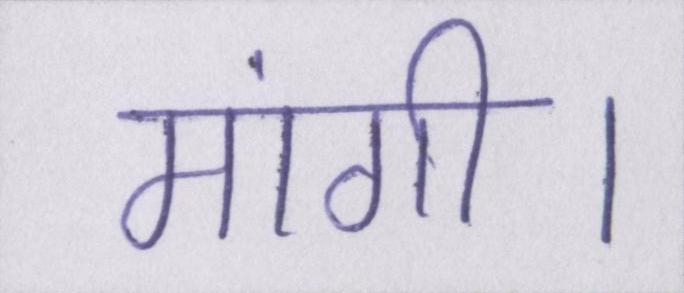 मांगी।